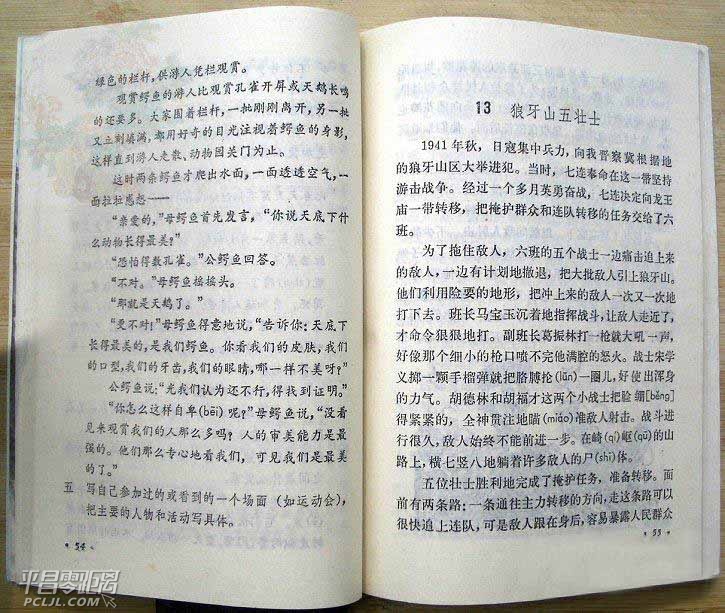 绿色的栏杆，供游人凭栏观赏。
观赏鳄鱼的游人比观赏孔雀开屏或天鹅长鸣
的还要多。大家围着栏杆，一批刚刚离开，另一批
又立刻填满，都用好奇的目光注视着鳄鱼的身影，
这样直到游人走散、动物园关门为止。
这时两条鳄鱼才爬出水面，一面透透空气，一
面拉拉感想——
“亲爱的，”母鳄鱼首先发言，“你说天底下什
么动物长得最美？”
“恐怕得数孔雀。”公鳄鱼回答。
“不对。”母鳄鱼摇摇头。
“那就是天鹅了。”
“更不对！”母鳄鱼得意地说，“告诉你：天底下
长得最美的，是我们鳄鱼。你看我们的皮肤，我们
的口型，我们的牙齿，我们的眼睛，哪一样不美呀？”
公鳄鱼说：“光我们认为还不行，得找到证明。”
“你怎么这样自卑(bēi)呢？”母鳄鱼说，“没看
见来观赏我们的人那么多吗？人的审美能力是最
强的。他们那么专心地看我们，可见我们是最美
的了。”
五 写自己参加过的或看到的一个场面（如运动会），
把主要的人物和活动写具体。
· 54 ·
13 狼牙山五壮士
1941年秋，日寇集中兵力，向我晋察冀根据地
的狼牙山区大举进犯。当时，七连奉命在这一带坚持
游击战争。经过一个多月英勇奋战，七连决定向龙王
庙一带转移，把掩护群众和连队转移的任务交给了六
班。
为了拖住敌人，六班的五个战士一边痛击追上来
的敌人，一边有计划地撤退，把大批敌人引上狼牙山。
他们利用险要的地形，把冲上来的敌人一次又一次地
打下去。班长马宝玉沉着地指挥战斗，让敌人走近了，
才命令狠狠地打。副班长葛振林打一枪就大吼一声，
好像那个细小的枪口喷不完他满腔的怒火。战士宋学
义掷一颗手榴弹就把胳膊抡(lūn)一圈儿，好使出浑身
的力气。胡德林和胡福才这两个小战士把脸绷[běng]
得紧紧的，全神贯注地瞄(miáo)准敌人射击。战斗进
行很久，敌人始终不能前进一步。在崎(qí)岖(qū)的山
路上，横七竖八地躺着许多敌人的尸(shī)体。
五位壮士胜利地完成了掩护任务，准备转移。面
前有两条路：一条通往主力转移的方向，走这条路可以
很快追上连队，可是敌人跟在身后，容易暴露人民群众
· 55 ·
平昌零距离
PCLJL.COM